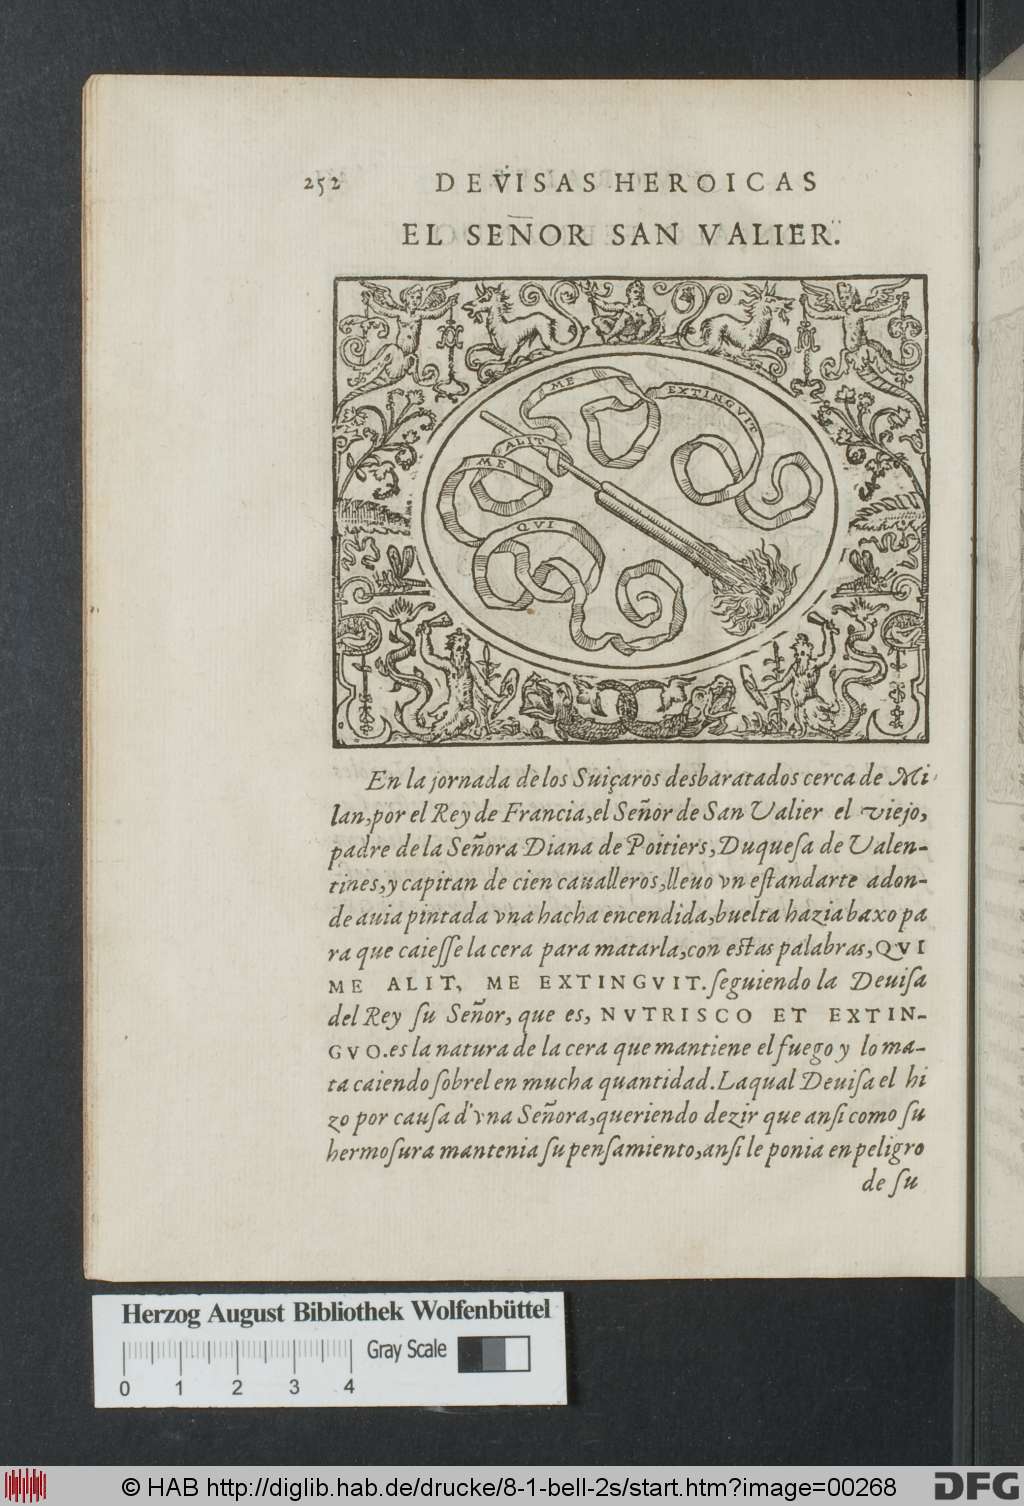 252 DEVISAS HEROICAS
EL SEÑOR SAN VALIER.
ME
EXTINGVIT
ALIT
ME
QVI
En la jornada de los Suiçaros desbaratados cerca de Mi
lan, por el Rey de Francia, el Señor de San Valier el viejo,
padre de la Señora Diana de Poitiers, Duqueſa de Valen-
tines, y capitan de cien caualleros, lleuo vn eſtandarte adon-
de auia pintada vna hacha encendida, buelta hazia baxo pa
ra que caieſſe la cera para matarla, con eſtas palabras, QVI
ME ALIT, ME EXTINGVIT. ſeguiendo la Deuiſa
del Rey ſu Señor, que es, NVTRISCO ET EXTIN-
GVO. es la natura de la cera que mantiene el fuego y lo ma-
ta caiendo ſobrel en mucha quantidad. Laqual Deuiſa el hi
zo por cauſa d'vna Señora, queriendo dezir que anſi como ſu
hermoſura mantenia ſu penſamiento, anſi le ponia en peligro
de ſu
Herzog August Bibliothek Wolfenbüttel
Gray Scale
0 1 2 3 4
© HAB http://diglib.hab.de/drucke/8-1-bell-2s/start.htm?image=00268
DFG